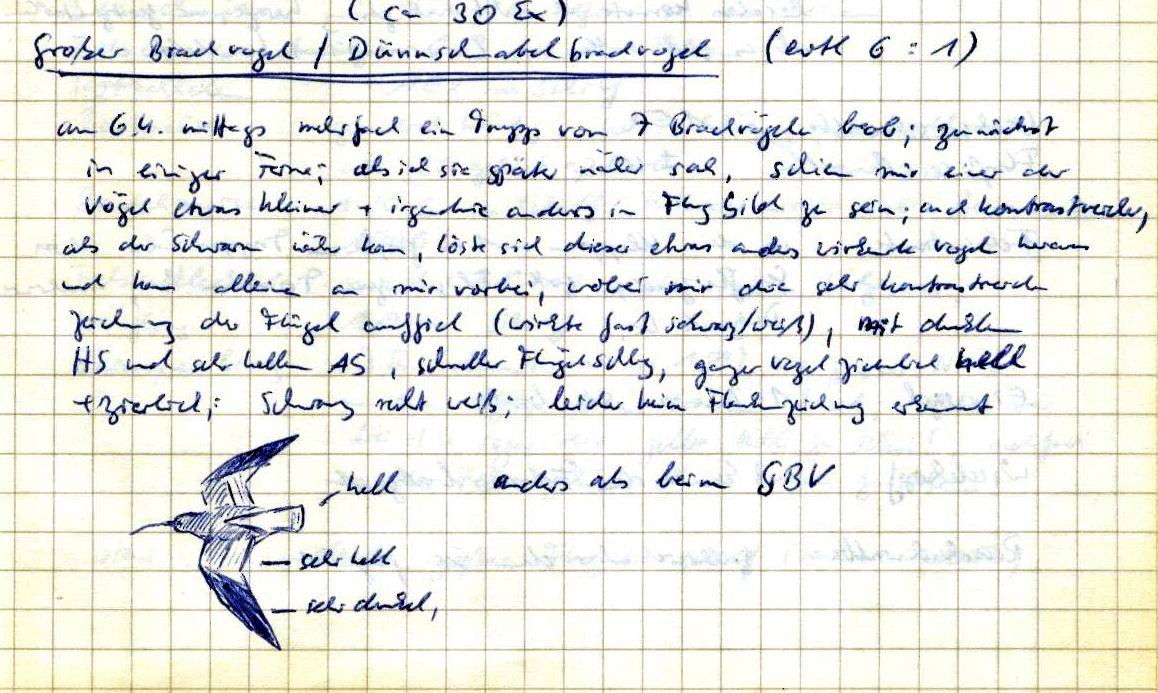 (ca 30 Ex)
Großer Brachvogel / Dünnschnabelbrachvogel (evtl 6 : 1)
am 6.4. mittags mehrfach ein Trupp von 7 Brachvögeln beob; zunächst
in einiger Ferne; als ich sie später näher sah, schien mir einer der
Vögel etwas kleiner + irgendwie anders im Flugbild zu sein; und kontrastreicher,
als der Schwarm näher kam, löste sich dieser etwas anders wirkende Vogel heraus
und kam allein an mir vorbei, wobei mir die sehr kontrastreiche
Zeichnung der Flügel auffiel (wirkte fast schwarz/weiß), mit dunklen
HS und sehr hellen AS, schneller Flügelschlag, ganzer Vogel ziemlich hell
+ zierlich; Schwanz recht weiß; leider keine Flankenzeichnung erkannt
hell anders als beim GBV
sehr hell
sehr dunkel,